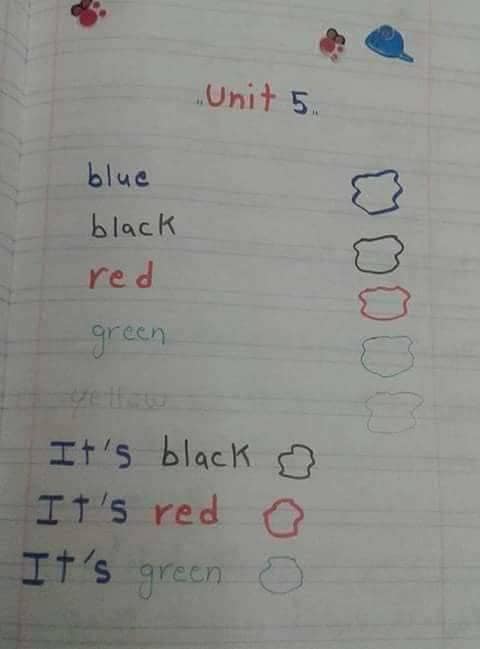 ,,Unit 5,,
blue
black
red
green
yellow
It's black
It's red
It's green